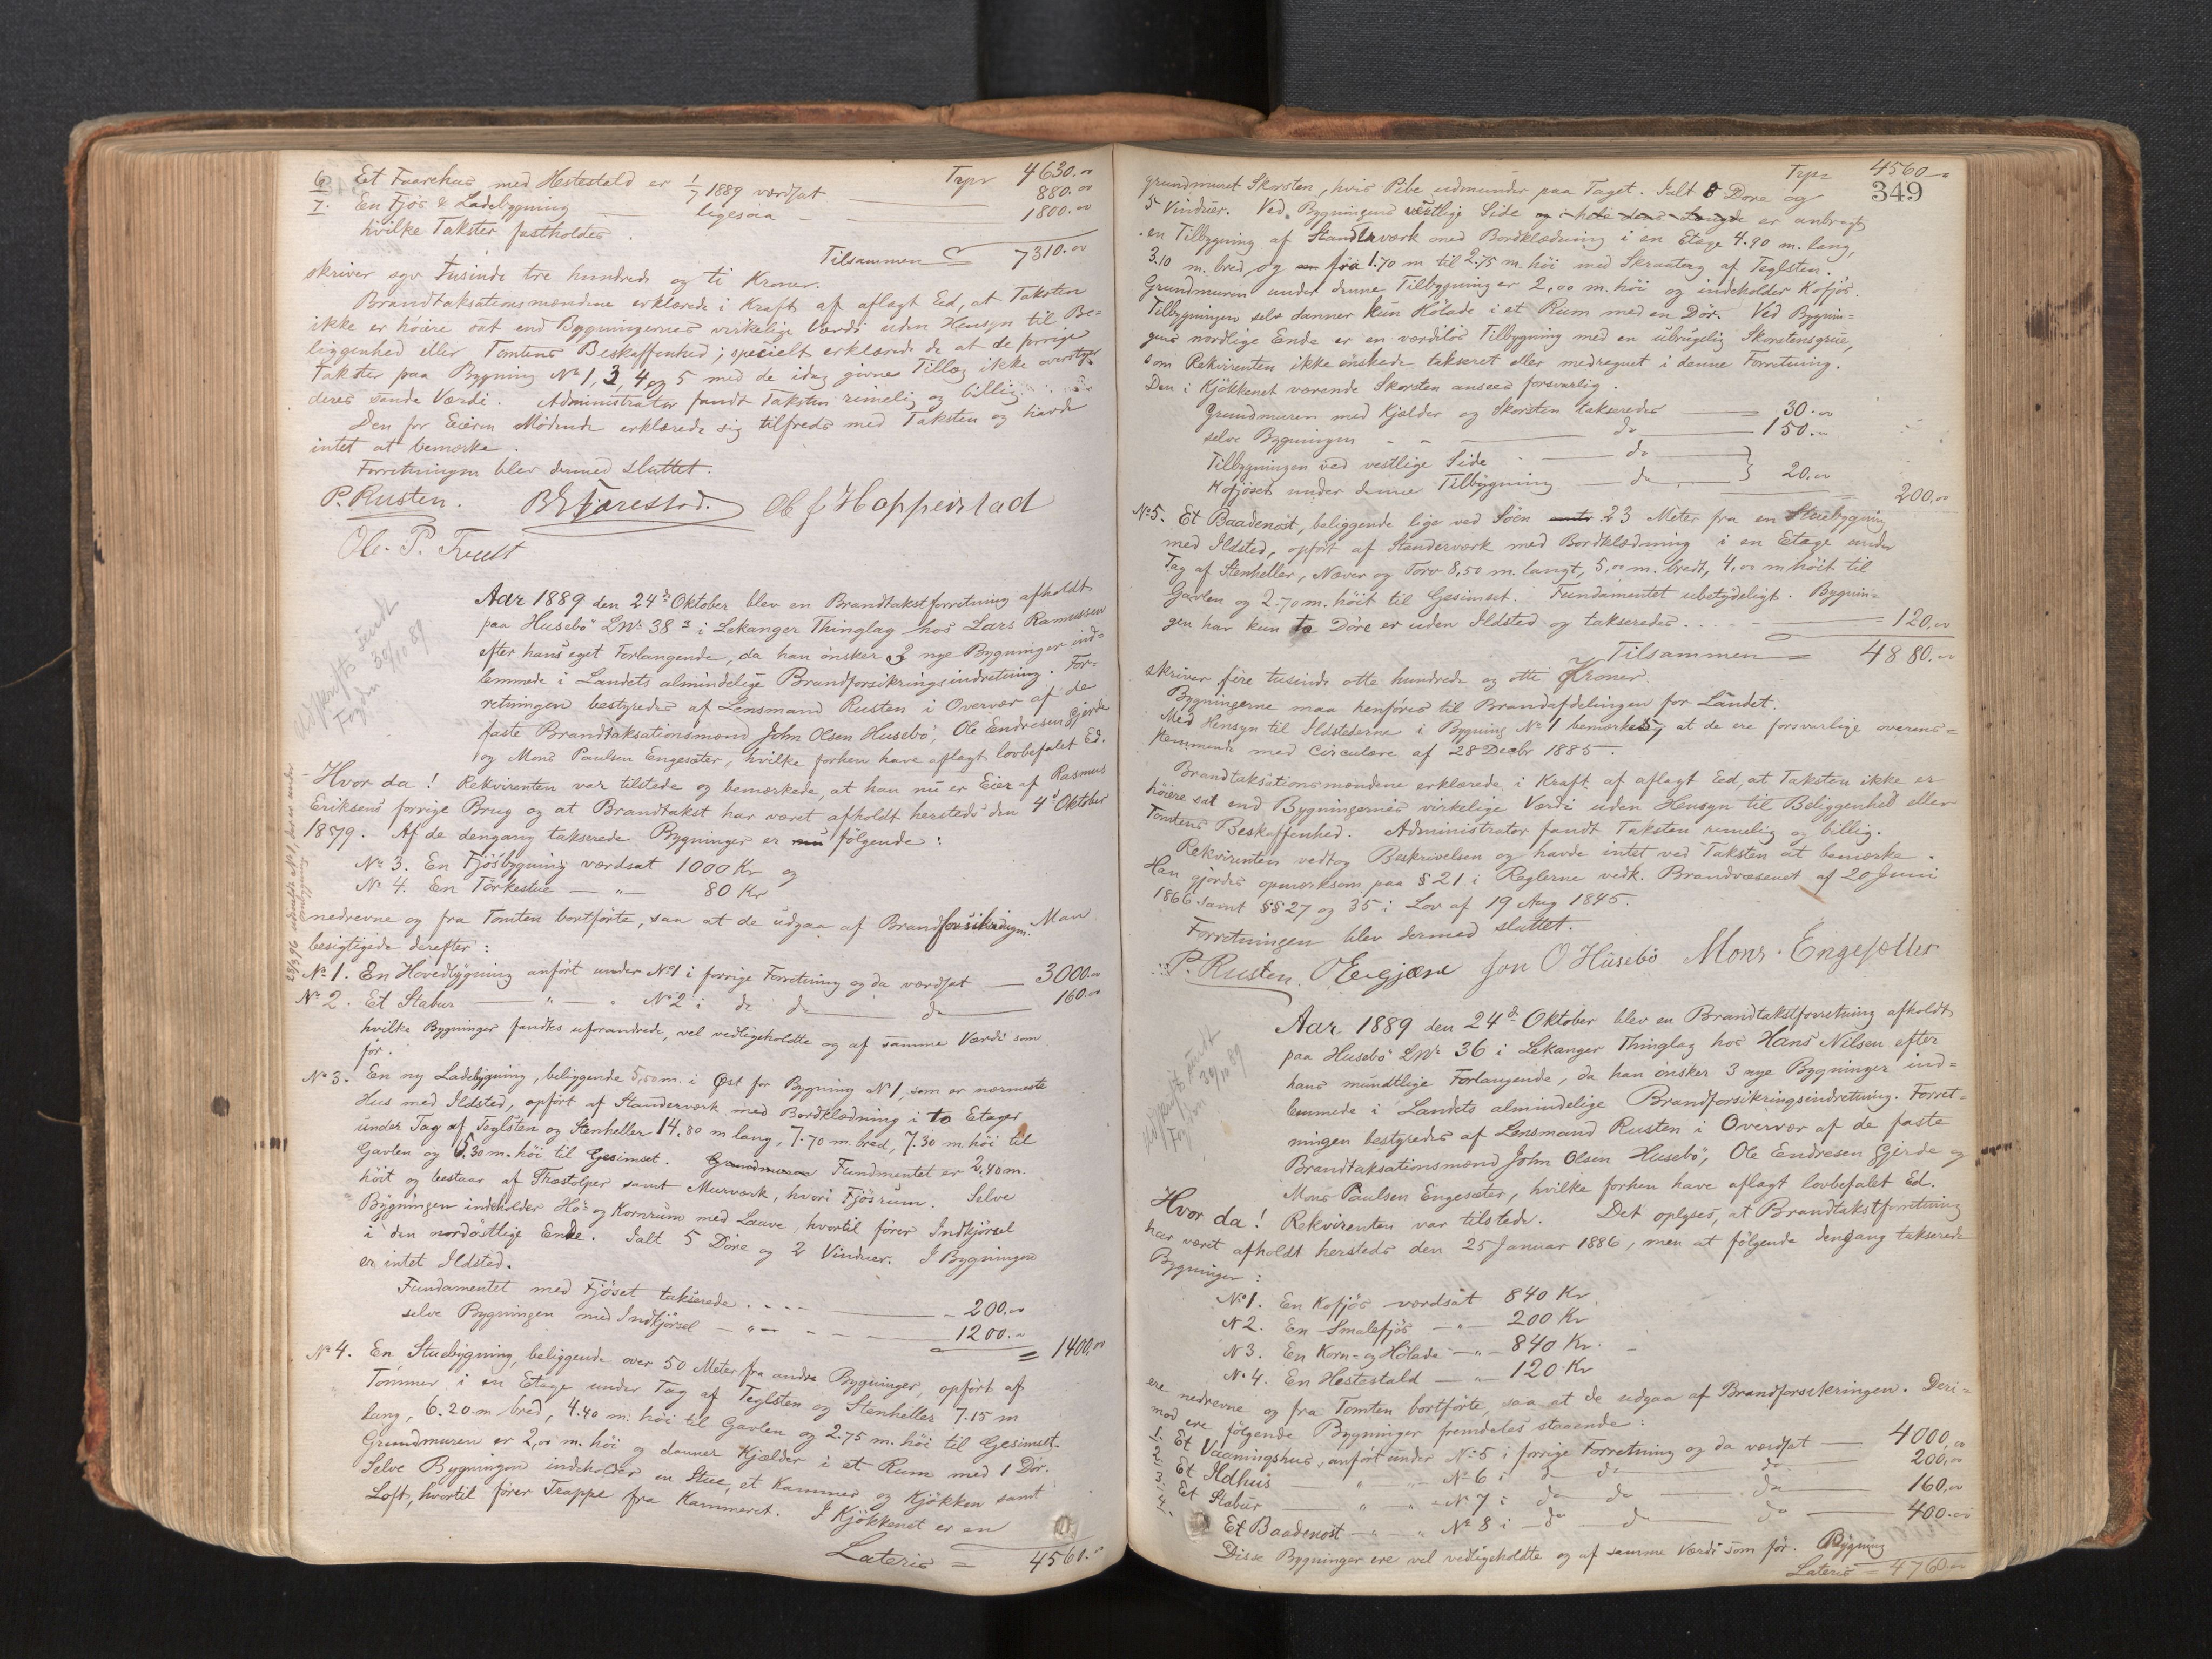 Trpr 4630.00
6 Et Faarehus med Hestestald er 1/7 1889 værdsat 880.00
7. En Fjös & Ladebygning ligesaa 1800.00
hvilke Takster fastholdes.
Tilsammen 7310.00
skriver syv tusinde tre hundrede og ti Kroner.
Brandtaksationsmændene erklærede i Kraft af aflagt Ed, at Taksten
ikke er höiere sat end Bygningernes virkelige Værdi uden Hensyn til Be-
liggenhed eller Tomtens Beskaffenhed; specielt erklærede de at de forrige
Takster paa Bygning No 1, 3, 4 og 5 med de idag givne Tillæg ikke overstige
deres sande Værdi. Administrator fandt Taksten rimelig og billig.
Den for Eieren Mödende erklærede sig tilfreds med Taksten og havde
intet at bemærke.
Forretningen blev dermed sluttet.
P. Rusten. Ol J Hopperstad
Ole. P. Tveit
Aar 1889 den 24de Oktober blev en Brandtakstforretning afholdt
paa Husebö LNr 38 a i Lekanger Thinglag hos Lars Rasmussen
efter hans eget Forlangende, da han önsker 3 nye Bygninger ind-
lemmede i Landets almindelige Brandforsikringsindretning. For-
retningen bestyredes af Lensmand Rusten i Overvær af de
faste Brandtaksationsmænd John Olsen Husebö, Ole Endresen Gjerde
og Mons Paulsen Engesæter, hvilke forhen have aflagt lovbefalet Ed.
Udskrift sendt
Fogden 30/10 89
Hvor da! Rekvirenten var tilstede og bemærkede, at han nu er Eier af Rasmus
Eriksens forrige Brug og at Brandtakst har været afholdt hersteds den 4de Oktober
1879. Af de dengang takserede Bygninger er nu fölgende:
No 3. En Fjösbygning værdsat 1000 Kr og
No 4. En Törkestue — " — 80 Kr
nedrevne og fra Tomten bortförte, saa at de udgaa af Brandforsikringen. Man
besigtigede derefter:
No 1. En Hovedbygning anfört under No 1 i forrige Forretning og da værdsat — 3000.00
No 2. Et Stabur — " — " No 2 i do do do 160.00
hvilke Bygninger fandtes uforandrede, vel vedligeholdte og af samme Værdi som
för.
No 3. En ny Ladebygning, beliggende 5,50 m. i Öst for Bygning No 1, som er nærmeste
Hus med Ildsted, opfört af Standerværk med Bordklædning i to Etager
under Tag af Teglsten og Stenheller 14.80 m lang, 7.70 m. bred, 7.30 m höi til
Gavlen og 5.30 m. höi til Gesimset. Grundmuren Fundmentet er 2,40 m.
höit og bestaar af Træstolper samt Murværk, hvori Fjösrum. Selve
Bygningen indeholder Hö- og Kornrum med Laave, hvortil förer Indkjörsel
i den nordöstlige Ende. Ialt 5 Döre og 2 Vinduer. I Bygningen
er intet Ildsted.
Fundamentet med Fjöset takserede .... 200.00
selve Bygningen med Indkjörsel — " — 1200.00
= 1400,00
No 4. En Stuebygning, beliggende over 50 Meter fra andre Bygninger, opfört af
Tömmer i en Etage under Tag af Teglsten og Stenheller 7.15 m
lang, 6.20 m bred, 4.40 m. höi til Gavlen og 2.75 m. höi til Gesimset.
Grundmuren er 2,00 m. höi og danner Kjælder i et Rum med 1 Dör.
Selve Bygningen indeholder en Stue, et Kammer og Kjökken samt
Loft, hvortil förer Trappe fra Kammeret. I Kjökkenet er en
Lateris = 4560.00
349
Trpr 4560.00
grundmuret Skorsten, hvis Pibe udmunder paa Taget. Ialt 5 Döre og
5 Vinduer. Ved Bygningens vestlige Side og i hele dens Længde er anbragt
en Tilbygning af Standerværk med Bordklædning i en Etage 4.90 m. lang,
3.10 m. bred og fra 1.70 m til 2.75 m. höi med Skraatag af Teglsten.
Grundmuren under denne Tilbygning er 2,00 m. höi og indeholder Kofjös.
Tilbygningen selv danner kun Hölade i et Rum med en Dör. Ved Bygnin-
gens nordlige Ende er en værdilös Tilbygning med en ubrugelig Skorstensgrue,
som Rekvirenten ikke önskede takseret eller medregnet i denne Forretning.
Den i Kjökkenet værende Skorsten ansees forsvarlig.
Grundmuren med Kjælder og Skorsten takseredes = 30.00
selve Bygningen — do — 150.00
Tilbygningen ved vestlige Side — do —
Kofjöset under denne Tilbygning — do — } 20.00
= 200.00
No 5. Et Baadenöst, beliggende lige ved Söen 23 Meter fra en Stuebygning
med Ildsted, opfört af Standerværk med Bordklædning i en Etage under
Tag af Stenheller, Næver og Torv 8,50 m. langt, 5,00 m. bredt, 4,00 m höit til
Gavlen og 2.70 m. höit til Gesimset. Fundamentet ubetydeligt. Bygnin-
gen har kun to Döre er uden Ildsted og takseredes .... = 120.00
Tilsammen = 4880.00
skriver fire tusinde otte hundrede og otti Kroner.
Bygningerne maa henföres til Brandafdelingen for Landet.
Med Hensyn til Ildstederne i Bygning No 1 bemærkes at de ere forsvarlige overens-
stemmende med Circulære af 28 Decbr 1885.
Brandtaksationsmændene erklærede i Kraft af aflagt Ed, at Taksten ikke er
höiere sat end Bygningernes virkelige Værdi uden Hensyn til Beliggenhed eller
Tomtens Beskaffenhed. Administrator fandt Taksten rimelig og billig.
Rekvirenten vedtog Beskrivelsen og havde intet ved Taksten at bemærke.
Han gjordes opmærksom paa § 21 i Reglerne vedk. Brandvæsenet af 20 Juni
1866 samt §§ 27 og 35 i Lov af 19 Aug 1845.
Forretningen blev dermed sluttet.
P. Rusten. O E Gjære Jon O Husebö Mons. Engesætter
Aar 1889 den 24de Oktober blev en Brandtakstforretning afholdt
paa Husebö LNr 36 i Lekanger Thinglag hos Hans Nilsen efter
hans mundtlige Forlangende, da han önsker 3 nye Bygninger ind-
lemmede i Landets almindelige Brandforsikringsindretning. Forret-
ningen bestyredes af Lensmand Rusten i Overvær af de faste
Brandtaksationsmænd John Olsen Husebö, Ole Endresen Gjerde og
Mons Paulsen Engesæter, hvilke forhen have aflagt lovbefalet Ed.
Udskrift sendt
Fogden 30/10 89
Hvor da! Rekvirenten var tilstede. Det oplyses, at Brandtakstforretning
har været afholdt hersteds den 25 Januar 1886, men at fölgende dengang takserede
Bygninger:
No 1. En Kofjös værdsat 840 Kr
N 2. En Smalefjös — " — 200 Kr
N 3. En Korn- og Hölade — " — 840 Kr.
No 4. En Hestestald — " — 120 Kr
ere nedrevne og fra Tomten bortförte, saa at de udgaa af Brandforsikringen. Deri-
mod ere fölgende Bygninger fremdeles staaende:
1. Et Vaaningshus, anfört under No 5 i forrige Forretning og da værdsat — 4000,00
2. Et Ildhus " No 6 i do do do 200,00
3. Et Stabur " " No 7 i do do do 160,00
4. Et Baadenöst " " No 8 i do do do 400.00
Disse Bygninger ere vel vedligeholdte og af samme Værdi som för. Bygning
Lateris = 4760.00